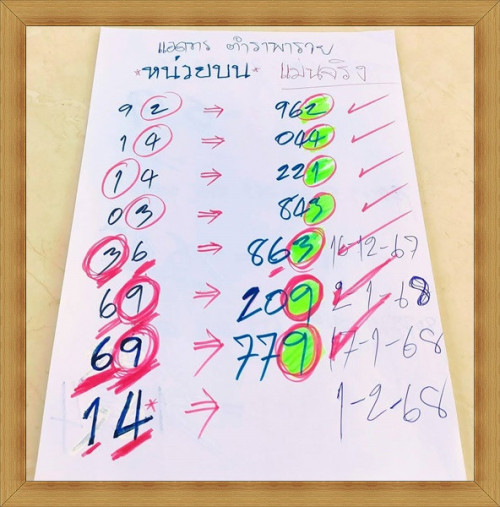 แอดวาร ตำราพารวย
*หน่วยบน* แม่นจริง
92 ⇒ 962 ✓
14 ⇒ 044 ✓
14 ⇒ 221 ✓
03 ⇒ 843 ✓
36 ⇒ 863 16-12-67
69 ⇒ 209 2-1-68
69 ⇒ 779 17-1-68
14* ⇒ 1-2-68